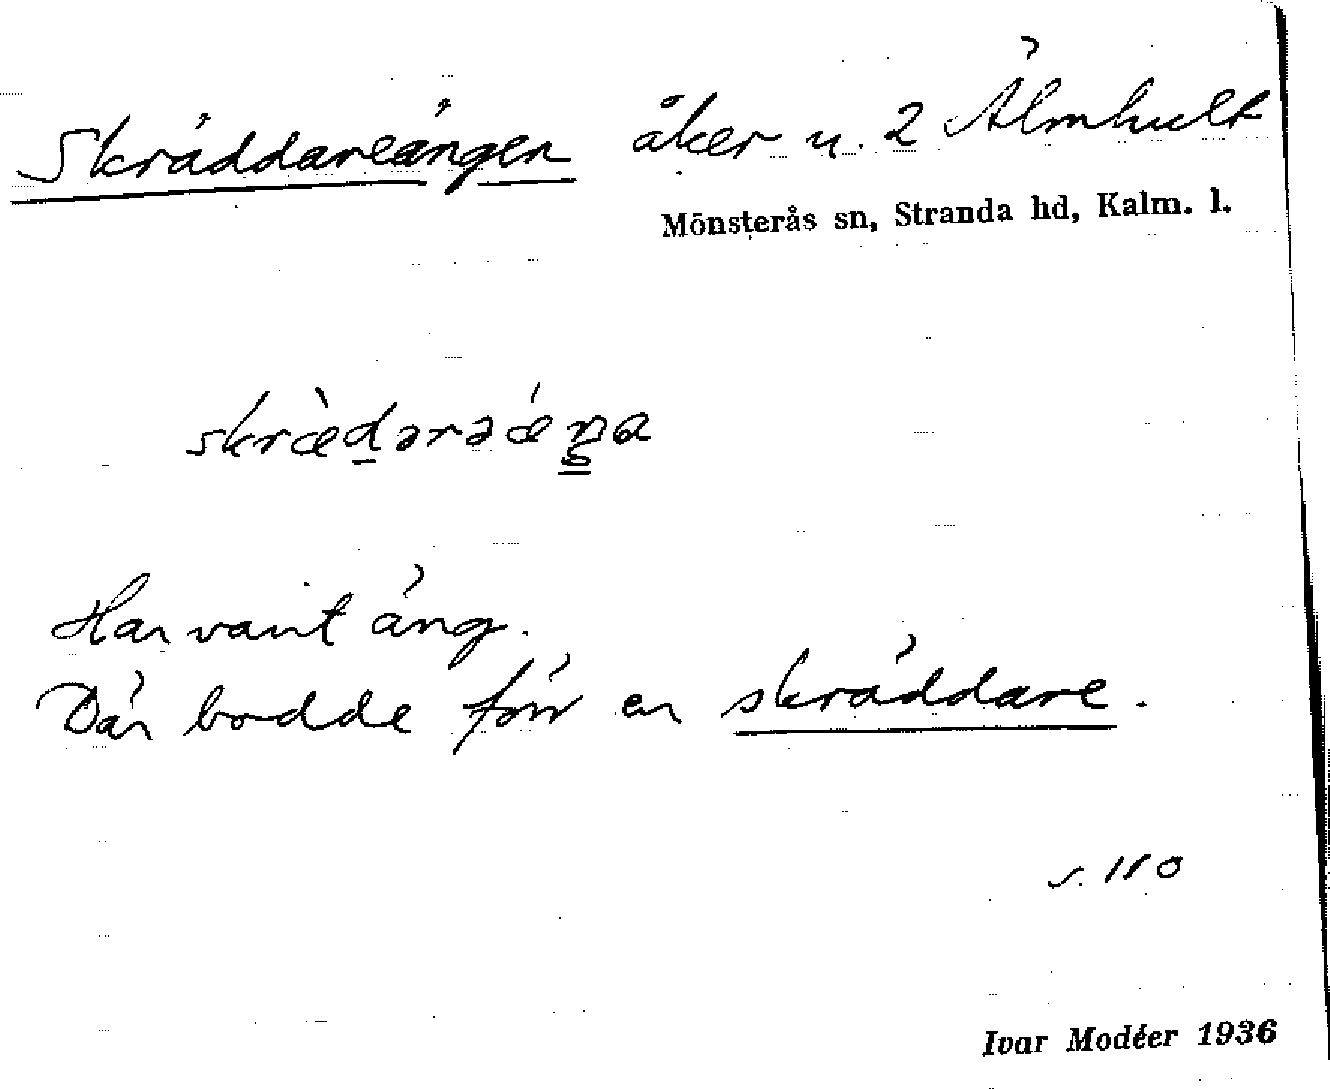 Skräddareängen åker u. 2 Älmhult
Mönsterås sn, Stranda hd, Kalm. l.
skræ̀d̠ərəǽŋa
Har varit äng.
Där bodde förr en skräddare.
s. 110
Ivar Modéer 1936